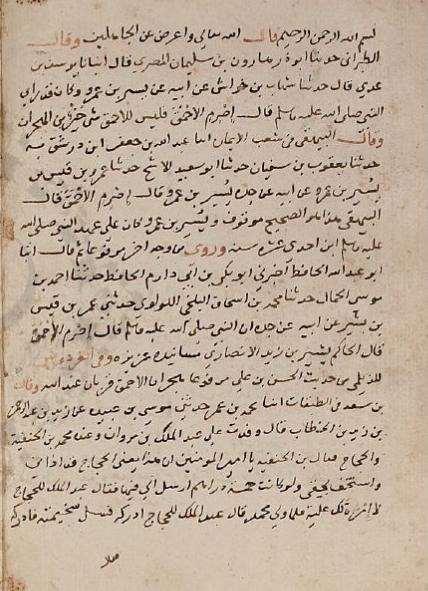 بسم الله الرحمن الرحيم قال الله تعالى واعرض عن الجاهلين وقال
الطبراني حدثنا ابو هارون بن سليمان المصري قال انبانا يوسف بن
عدي قال حدثنا شهاب بن خراش عن ابيه عن يسير بن عمرو وكان قد راى
النبي صلى الله عليه وسلم قال اصرم الاحمق فليس للاحمق شي خير من الهجران
وقال البيهقي في شعب الايمان انبا عبد الله بن جعفر ابن درستويه
حدثنا يعقوب بن سفيان حدثنا ابو سعيد الاشج حدثنا عمرو بن قيس بن
يسير بن عمرو عن ابيه عن جده يسير بن عمرو قال اصرم الاحمق قال
البيهقي هذا هو الصحيح موقوف ويسير بن عمرو كان على عهد النبي صلى الله
عليه وسلم ابن احدى عشرة سنة وروي من وجه اخر مرفوعا ثم قال انبا
ابو عبد الله الحافظ اخبرني ابو بكر بن ابي دارم الحافظ حدثنا احمد بن
موسى الحمال حدثنا محمد بن اسحاق البلخي اللولوي حدثني عمر بن قيس
بن يسير عن ابيه عن جده ان النبي صلى الله عليه وسلم قال اصرم الاحمق
قال الحاكم يسير بن زيد الانصاري مسانيده عزيزة وفي الفردوس
للديلمي من حديث الحسن بن علي مرفوعا هجران الاحمق قربان عند الله وقال
بن سعد في الطبقات انبا محمد بن عمر حدثني موسى بن عبيدة عن زيد بن عبد الرحمن
بن زيد بن الخطاب قال وفدت على عبد الملك بن مروان وعنده محمد بن الحنفية
والحجاج فقال بن الحنفية يا امير المومنين ان هذا يعني الحجاج قد اذاني
واستخف بحقي ولو كانت خمسة دراهم ارسل الي فيها فقال عبد الملك للحجاج
لا امرة لك عليه فلما ولى محمد قال عبد الملك للحجاج ادركه فسل سخيمته فادركه